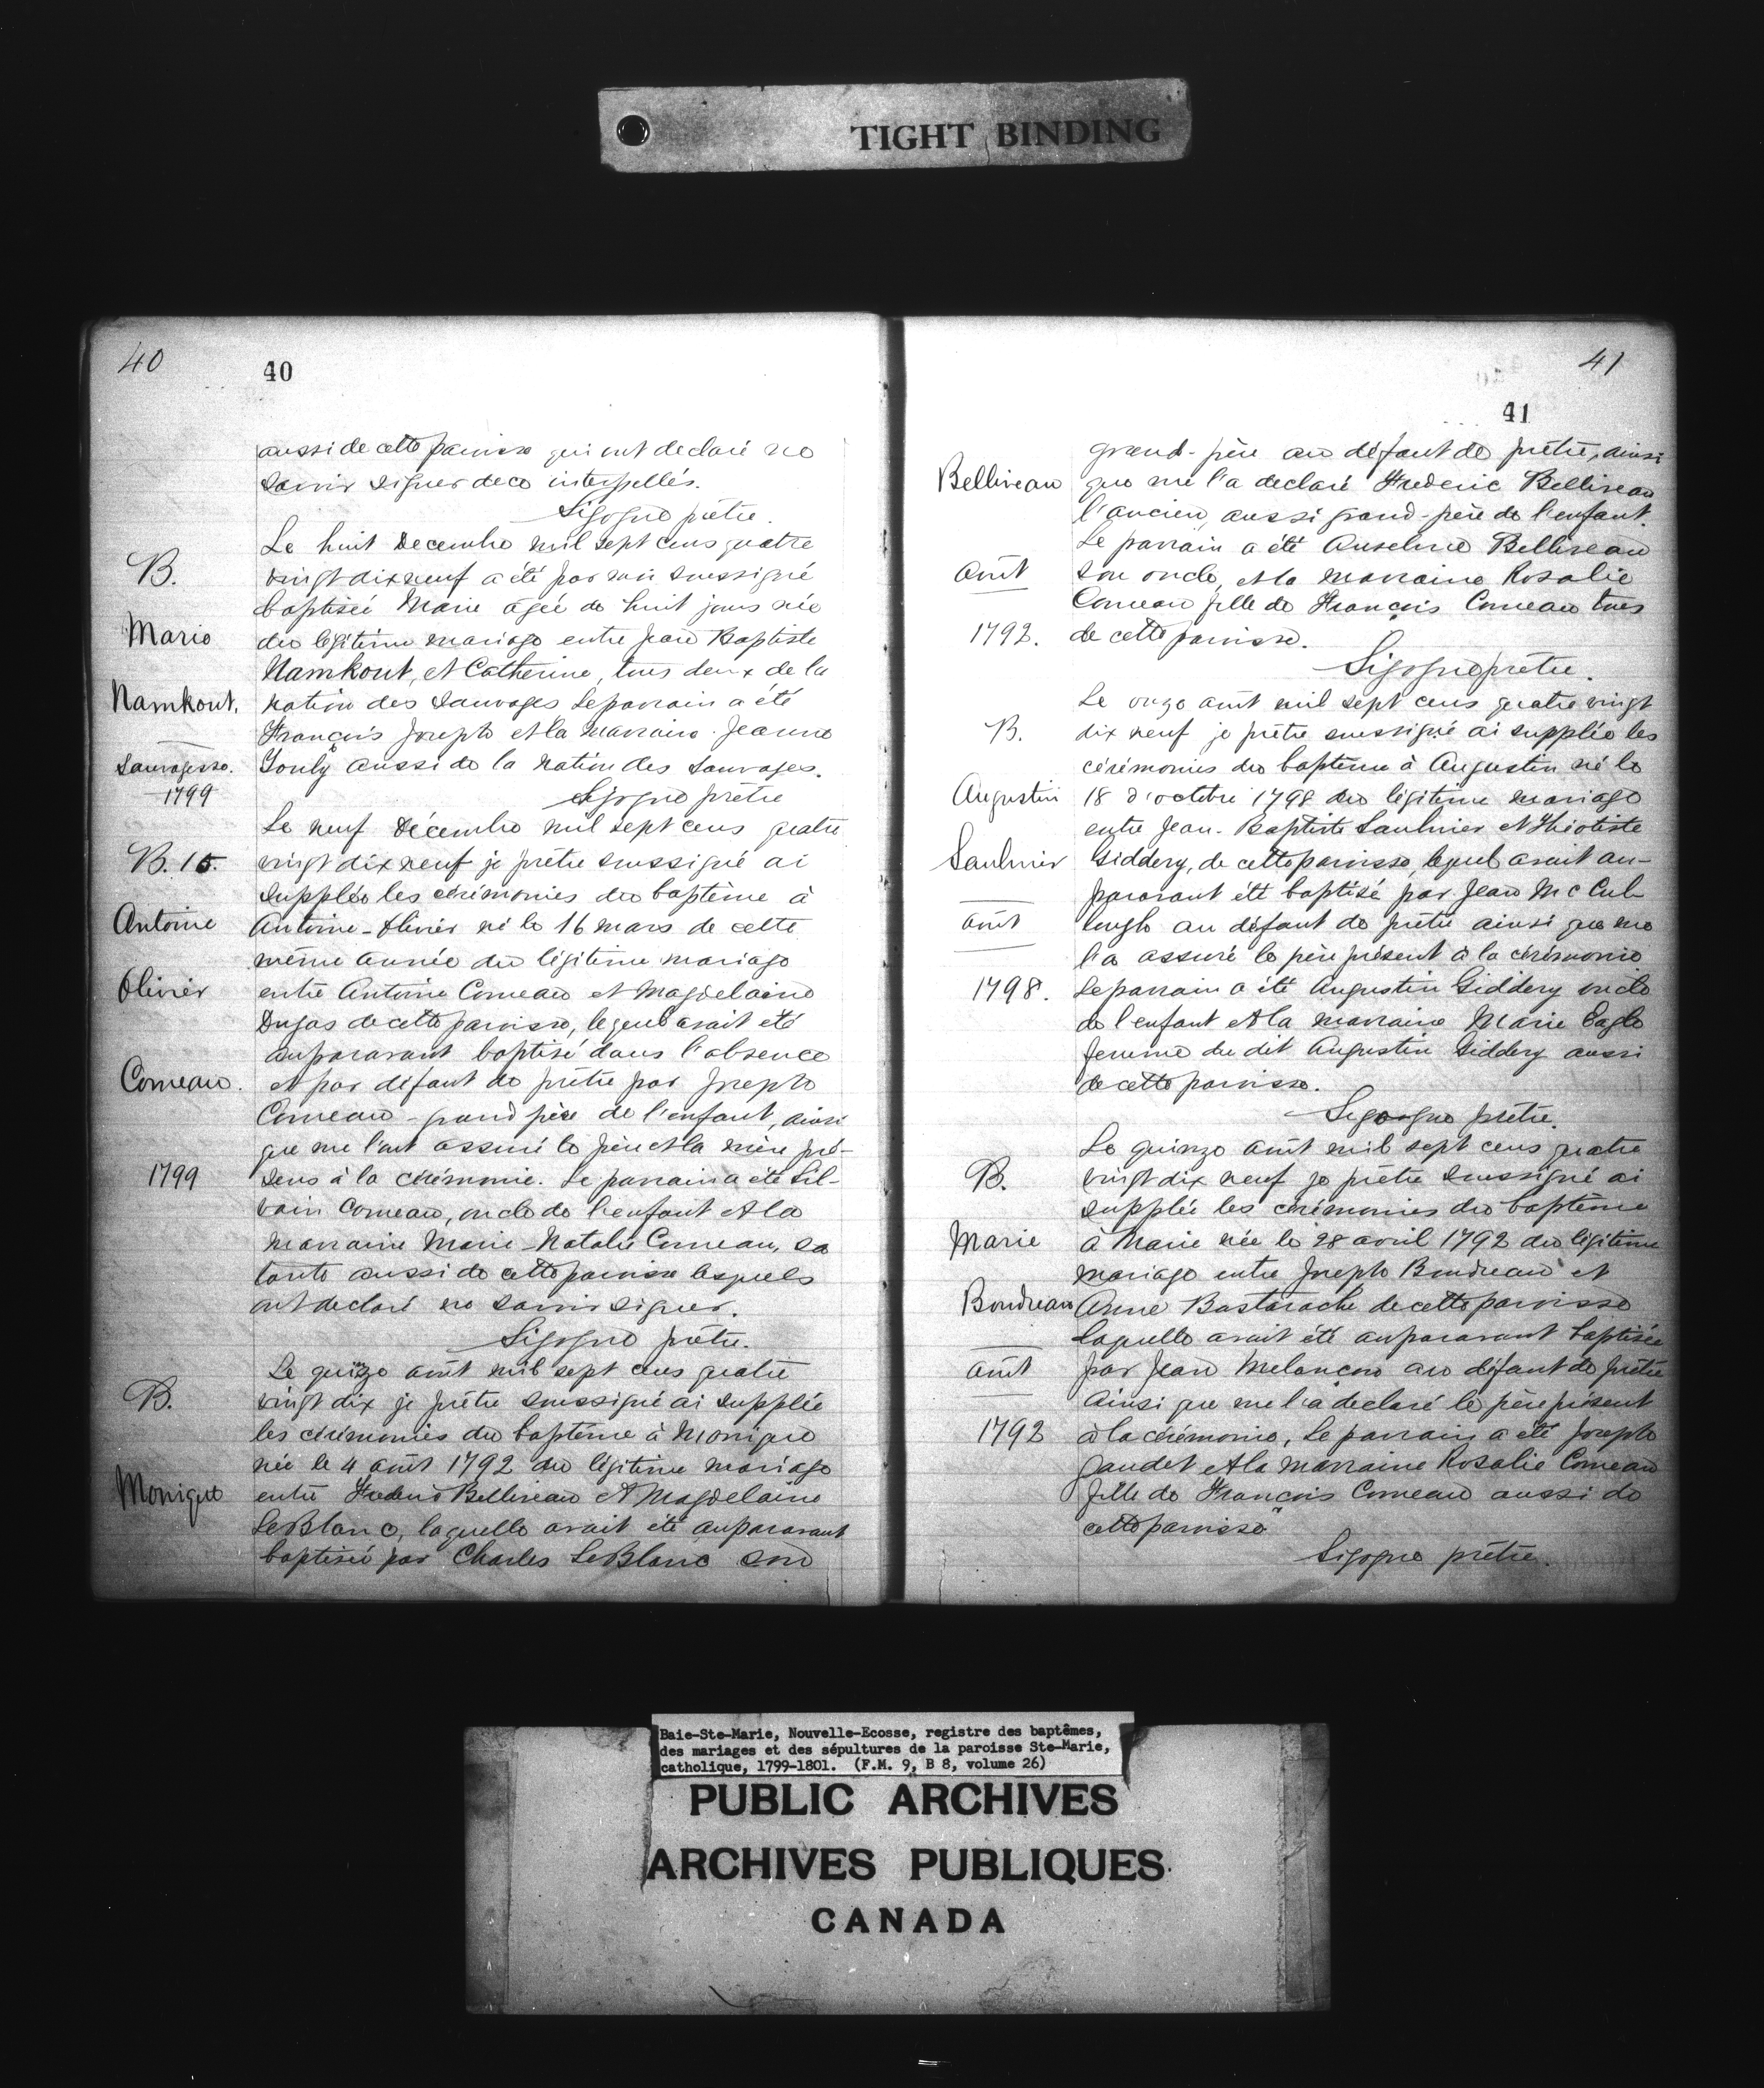 TIGHT BINDING
40
40
aussi de cette paroisse qui ont declaré ne
savoir signer de ce interpellés.
Sigogne prêtre.
Le huit Decembre mil sept cens quatre
B.
vingt dix neuf a été par moi soussigné
baptisée Marie agée de huit jours née
Marie
du légitime mariage entre Jean Baptiste
Namkout, et Catherine, tous deux de la
Namkout.
nation des Sauvages Le parrain a été
François Joseph et la Marraine Jeanne
Sauvagesse.
aussi de la nation des Sauvages.
1799
Sigogne prêtre
Le neuf Décembre mil sept cens quatre
B. 15.
vingt dix neuf je prêtre soussigné ai
supplée les cérémonies du baptème à
Antoine
Antoine-Olivier né le 16 mars de cette
même année du légitime mariage
Olivier
entre Antoine Comeau et Magdelaine
Dugas de cette paroisse, lequel avait été
auparavant baptisé dans l'absence
Comeau.
et par défaut de prêtre par Joseph
Comeau - grand père de l'enfant, ainsi
que me l'ont assuré le père et la mère pré-
1799
sens à la cérémonie. Le parrain a été Sil-
vain Comeau, oncle de l'enfant et la
marraine Marie-Natalie Comeau, sa
tante aussi de cette paroisse lesquels
ont declaré ne savoir signer.
Sigogne prêtre.
Le quinze août mil sept cens quatre
B.
vingt dix je prêtre soussigné ai supplée
les cérémonies du baptème à Monique
née le 4 août 1792 du légitime mariage
Monique
entre Frederic Belliveau et Magdelaine
LeBlanc, laquelle avait été auparavant
baptisée par Charles LeBlanc son
41
41
grand-père au défaut de prêtre, ainsi
Belliveau
que me l'a declaré Frederic Belliveau
l'ancien, aussi grand-père de l'enfant.
Le parrain a été Anselme Belliveau
août
son oncle, et la marraine Rosalie
Comeau fille de François Comeau tous
1792.
de cette paroisse.
Sigogne prêtre.
Le onze août mil sept cens quatre vingt
B.
dix neuf je prêtre soussigné ai supplée les
cérémonies du baptème à Augustin né le
Augustin
18 d'octobre 1798 du légitime mariage
entre Jean-Baptiste Saulnier et Théotiste
Saulnier
Giddery, de cette paroisse, lequel avait au-
paravant été baptisé par Jean Mc Cul-
août
lough au défaut de prêtre ainsi que me
l'a assuré le père présent à la cérémonie
1798.
Le parrain a été Augustin Giddery oncle
de l'enfant et la marraine Marie Eagle
femme du dit Augustin Giddery aussi
de cette paroisse.
Sigogne prêtre.
Le quinze août mil sept cens quatre
B.
vingt dix neuf je prêtre soussigné ai
supplée les cérémonies du baptème
Marie
à Marie née le 28 avril 1792 du légitime
mariage entre Joseph Boudreau et
Boudreau
Anne Bastarache de cette paroisse
laquelle avait été auparavant baptisée
août
par Jean Melançon au défaut de prêtre
ainsi que me l'a declaré le père présent
1792
à la cérémonie, Le parrain a été Joseph
Gaudet et la marraine Rosalie Comeau
fille de François Comeau aussi de
cette paroisse
Sigogne prêtre.
Baie-Ste-Marie, Nouvelle-Ecosse, registre des baptêmes,
des mariages et des sépultures de la paroisse Ste-Marie,
catholique, 1799-1801. (F.M. 9, B 8, volume 26)
PUBLIC ARCHIVES
ARCHIVES PUBLIQUES
CANADA